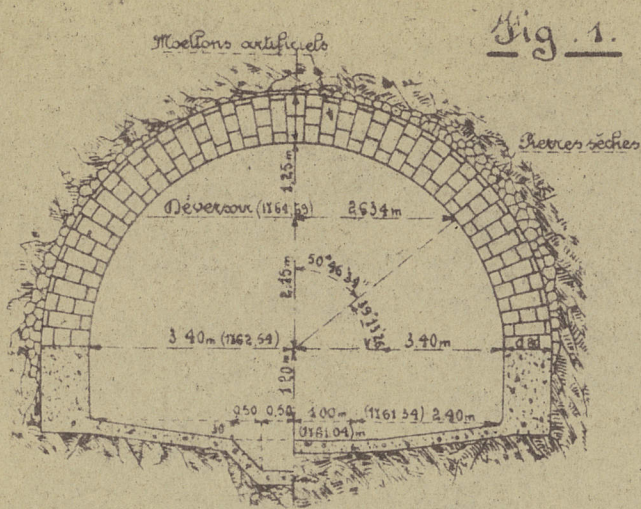 Fig. 1.
Moellons artificiels
Pierres sèches
1,25m
Déversoir (1764,59) 2,634m
2,15m
50°46'34
39°13'26
3.40m (1762,54) 3.40m
0 80
1.20m
0.50 0,50 1.00m (1761 34) 2,40m
10 (1761.04)m